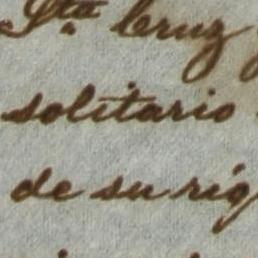 Sta. Cruz
solitario
de su rig